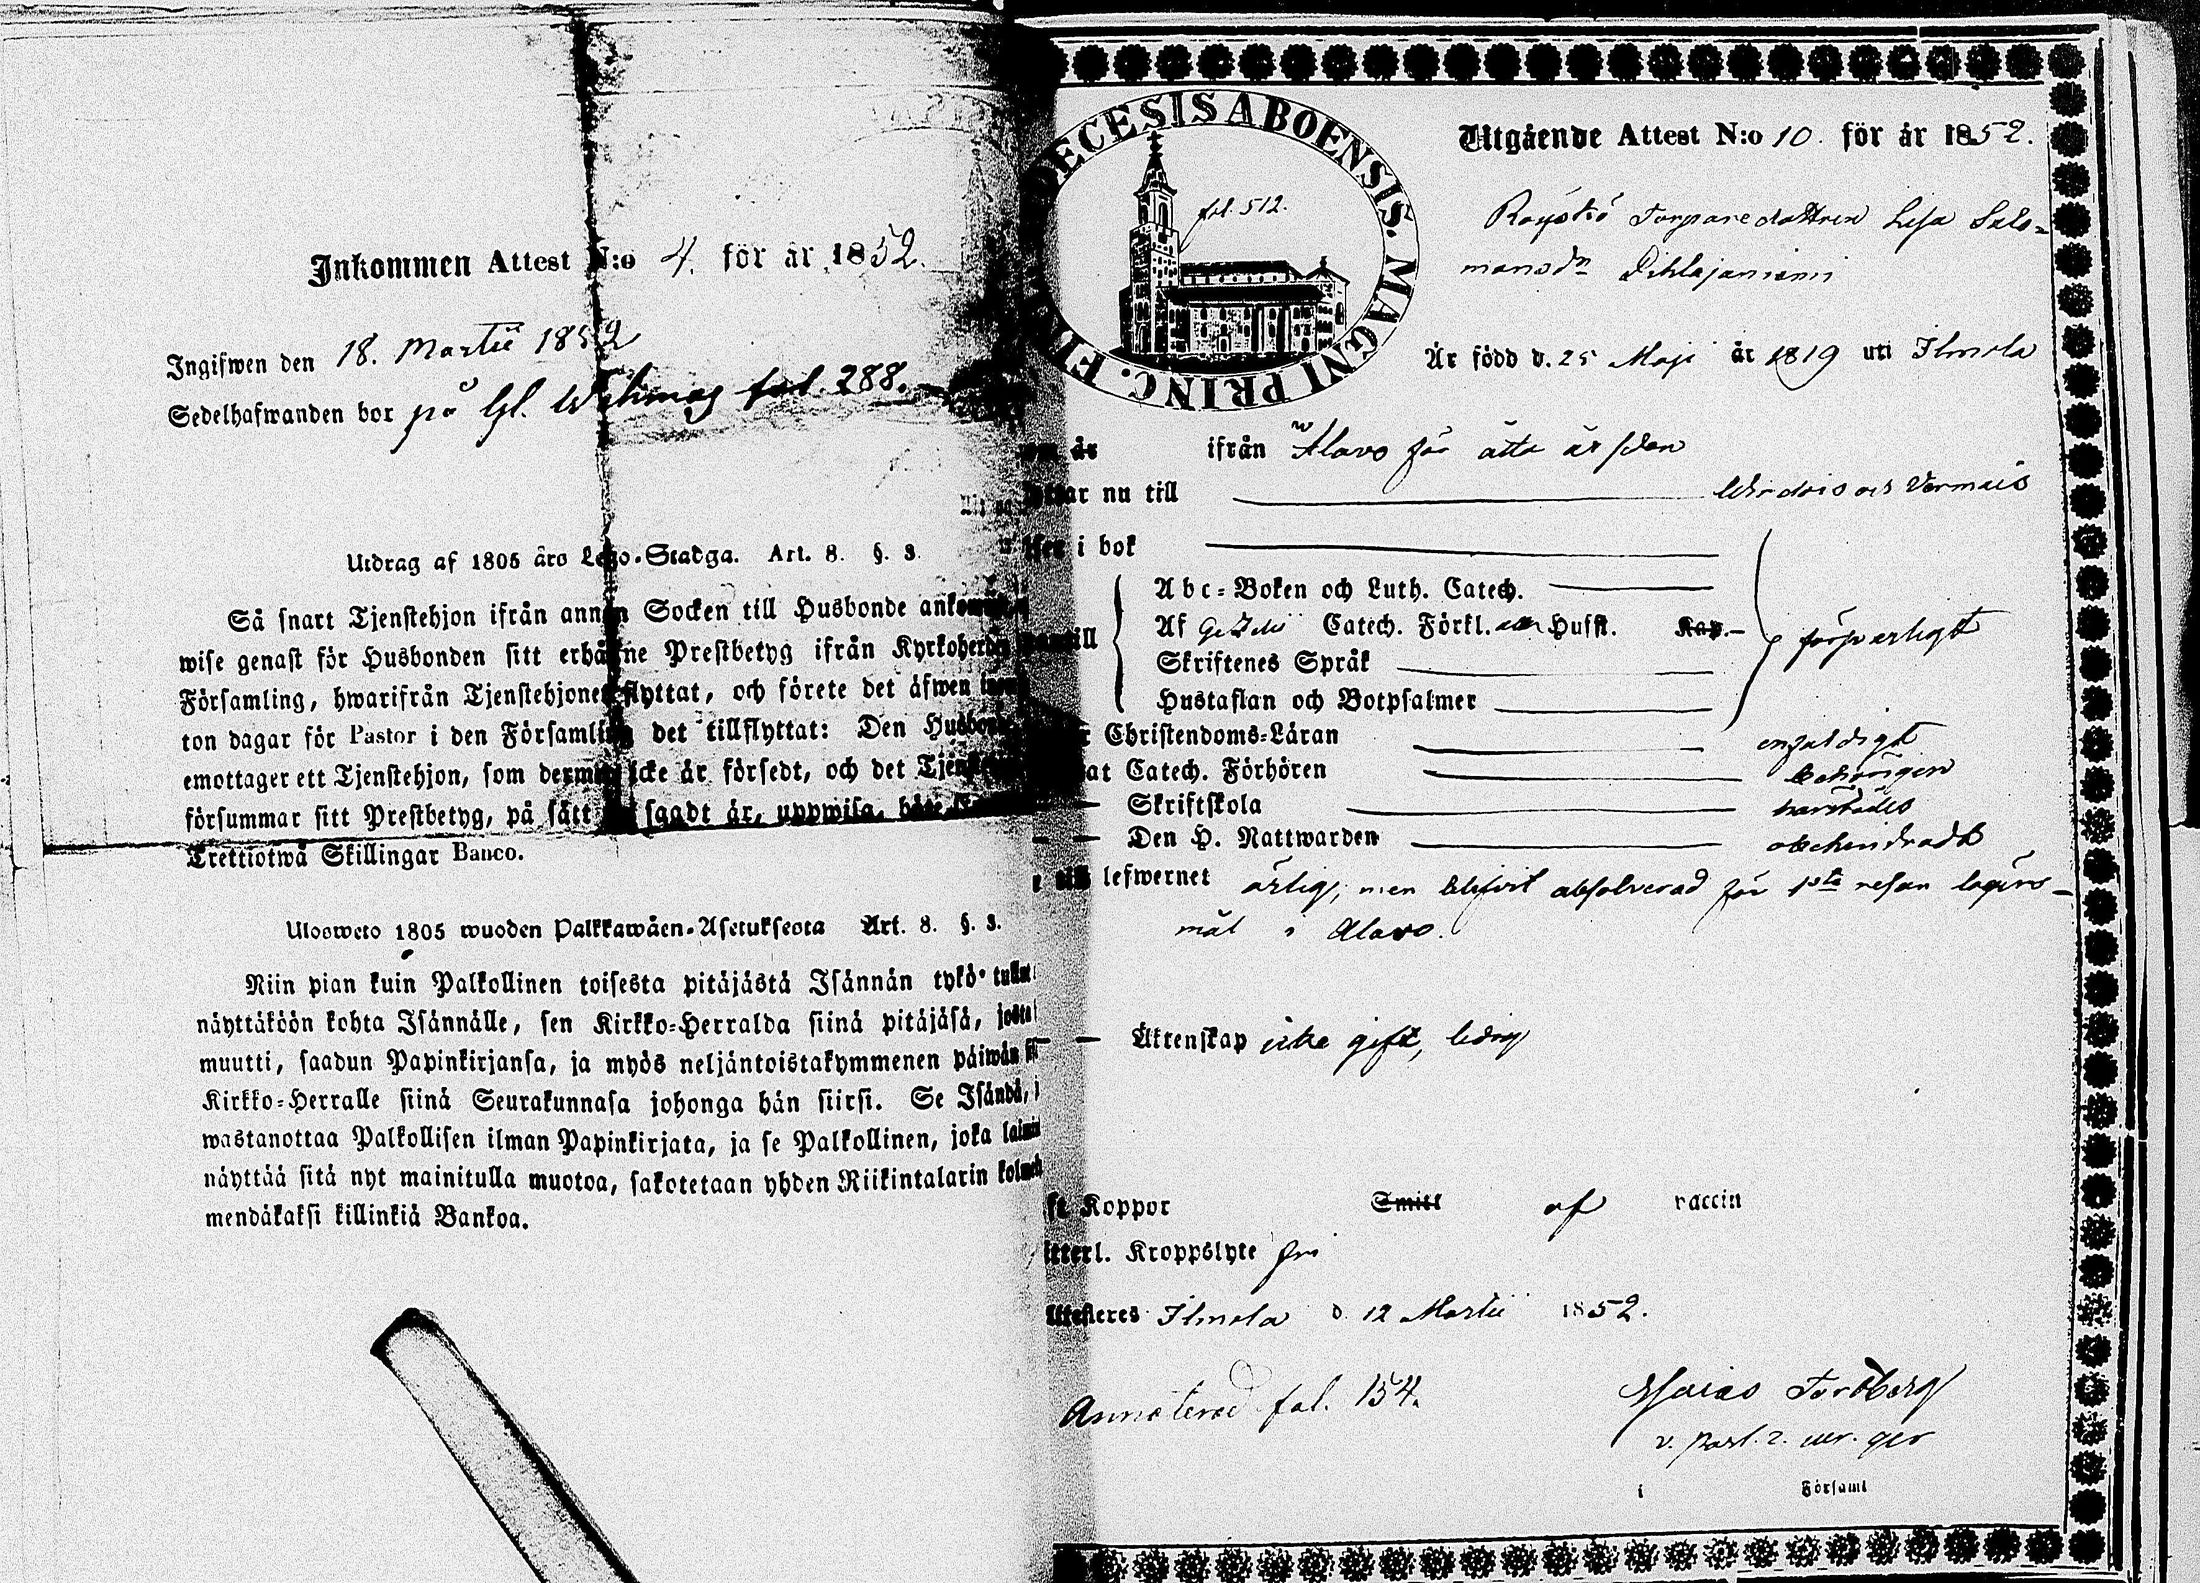 Inkommen Attest N:o 4. för år 1852.
Ingifwen den 18. Martii 1852
Sedelhafwanden bor på Gl. fol. 288.
Utdrag af 1805 års Lego-Stadga. Art. 8. §. 3.
Så snart Tjenstehjon ifrån annan Socken till Husbonde
wise genast för Husbonden sitt erhållne Prestbetyg ifrån
Församling, hwarifrån Tjenstehjonet flyttat, och förete det äfwen
ton dagar för Pastor i den Församling det tillflyttat: Den
emottager ett Tjenstehjon, som dermed icke är försedt, och det
försummar sitt Prestbetyg, på sätt sagdt är, uppwisa,
Trettiotwå Skillingar Banco.
Ulosweto 1805 wuoden Palkkawäen-Asetuksesta Art. 8. §. 3.
Niin pian kuin Palkollinen toisesta pitäjästä Isännän tykö tullut
näyttäköön kohta Isännälle, sen Kirkko-Herralda siinä pitäjäsä, josta
muutti, saadun Papinkirjansa, ja myös neljäntoistakymmenen päiwän
Kirkko-Herralle siinä Seurakunnasa johonga hän siirsi. Se Isändä,
wastanottaa Palkollisen ilman Papinkirjata, ja se Palkollinen, joka
näyttää sitä nyt mainitulla muotoa, sakotetaan yhden Riikintalarin
mendäkaksi killinkiä Bankoa.
DECESIS ABOENSIS. MAGNI PRINC.
fol. 512.
Utgående Attest N:o 10. för år 1852.
Torparedottren Lisa Salo-
monsdr Pihlajaniemi
År född d. 25 Maji år 1819 uti Ilmola
ifrån Alavo för åtta år sedan
nu till
i bok
Abc-Boken och Luth. Catech.
Af Catech. Förkl. Hufst.
Skriftenes Språk
Hustaflan och Botpsalmer
försvarligt
Christendoms-Läran enfaldigt
Catech. Förhören behörigen
Skriftskola
Den H. Nattwarden obehindradt
lefwernet ärlig, men blifvit absolverad för 1sta resan lägers-
mål i Alavo.
Äktenskap icke gift, ledig
Koppor Smitt af vaccin
Kroppslyte fri
Attesteres Ilmola d. 12 Martii 1852.
Annoterad fol. 154.
Esaias Tordberg
v. past.
i Församl